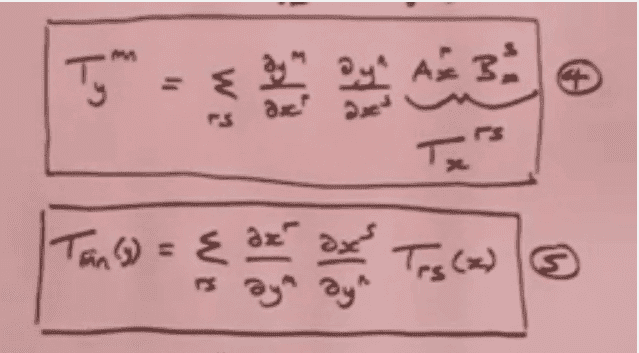 T_y^{mn} = Σ_{rs} ∂y^m/∂x^r ∂y^n/∂x^s A_x^r B_x^s ④
T_x^{rs}
T_{mn}(y) = Σ_{rs} ∂x^r/∂y^m ∂x^s/∂y^n T_{rs}(x) ⑤